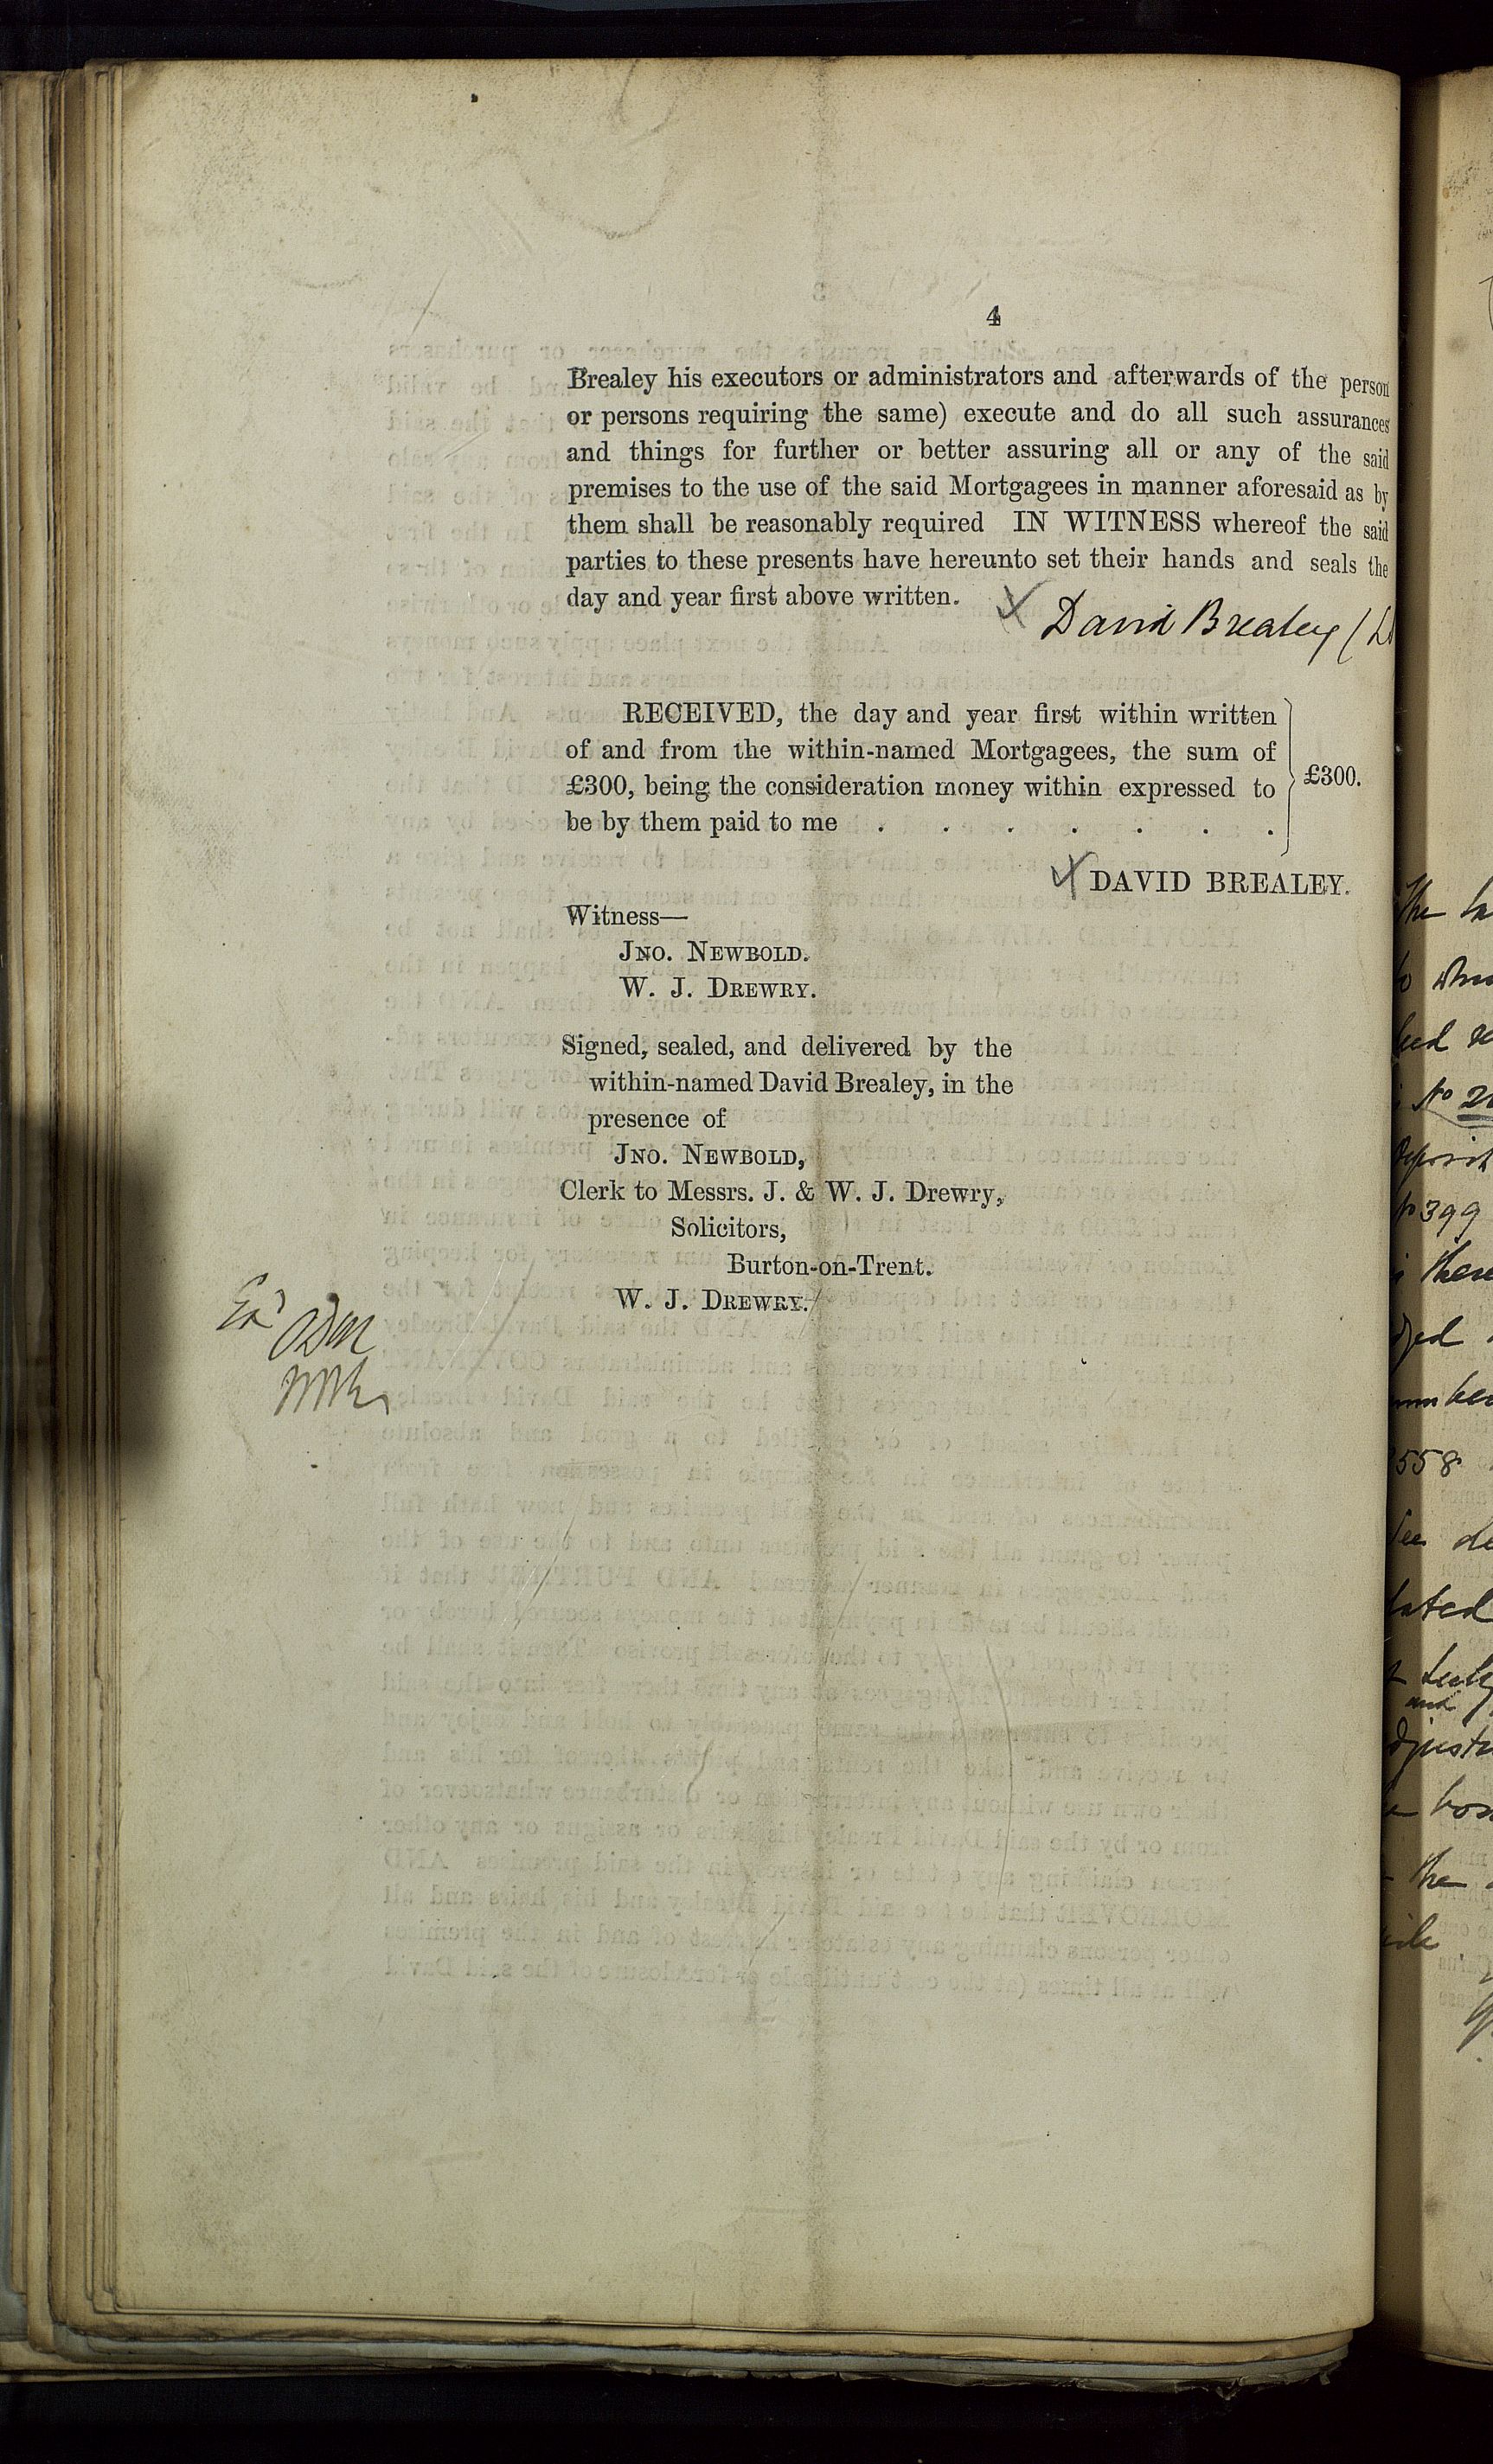 4
Brealey his executors or administrators and afterwards of the person
or persons requiring the same) execute and do all such assurances
and things for further or better assuring all or any of the said
premises to the use of the said Mortgagees in manner aforesaid as by
them shall be reasonably required IN WITNESS whereof the said
parties to these presents have hereunto set their hands and seals the
day and year first above written.
David Brealey (
RECEIVED, the day and year first within written
of and from the within-named Mortgagees, the sum of
£300, being the consideration money within expressed to
be by them paid to me . . . . . . .
£300.
DAVID BREALEY.
Witness—
JNO. NEWBOLD.
W. J. DREWRY.
Signed, sealed, and delivered by the
within-named David Brealey, in the
presence of
JNO. NEWBOLD,
Clerk to Messrs. J. & W. J. Drewry,
Solicitors,
Burton-on-Trent.
W. J. DREWRY.
Exd
The
No
399
there
558
the